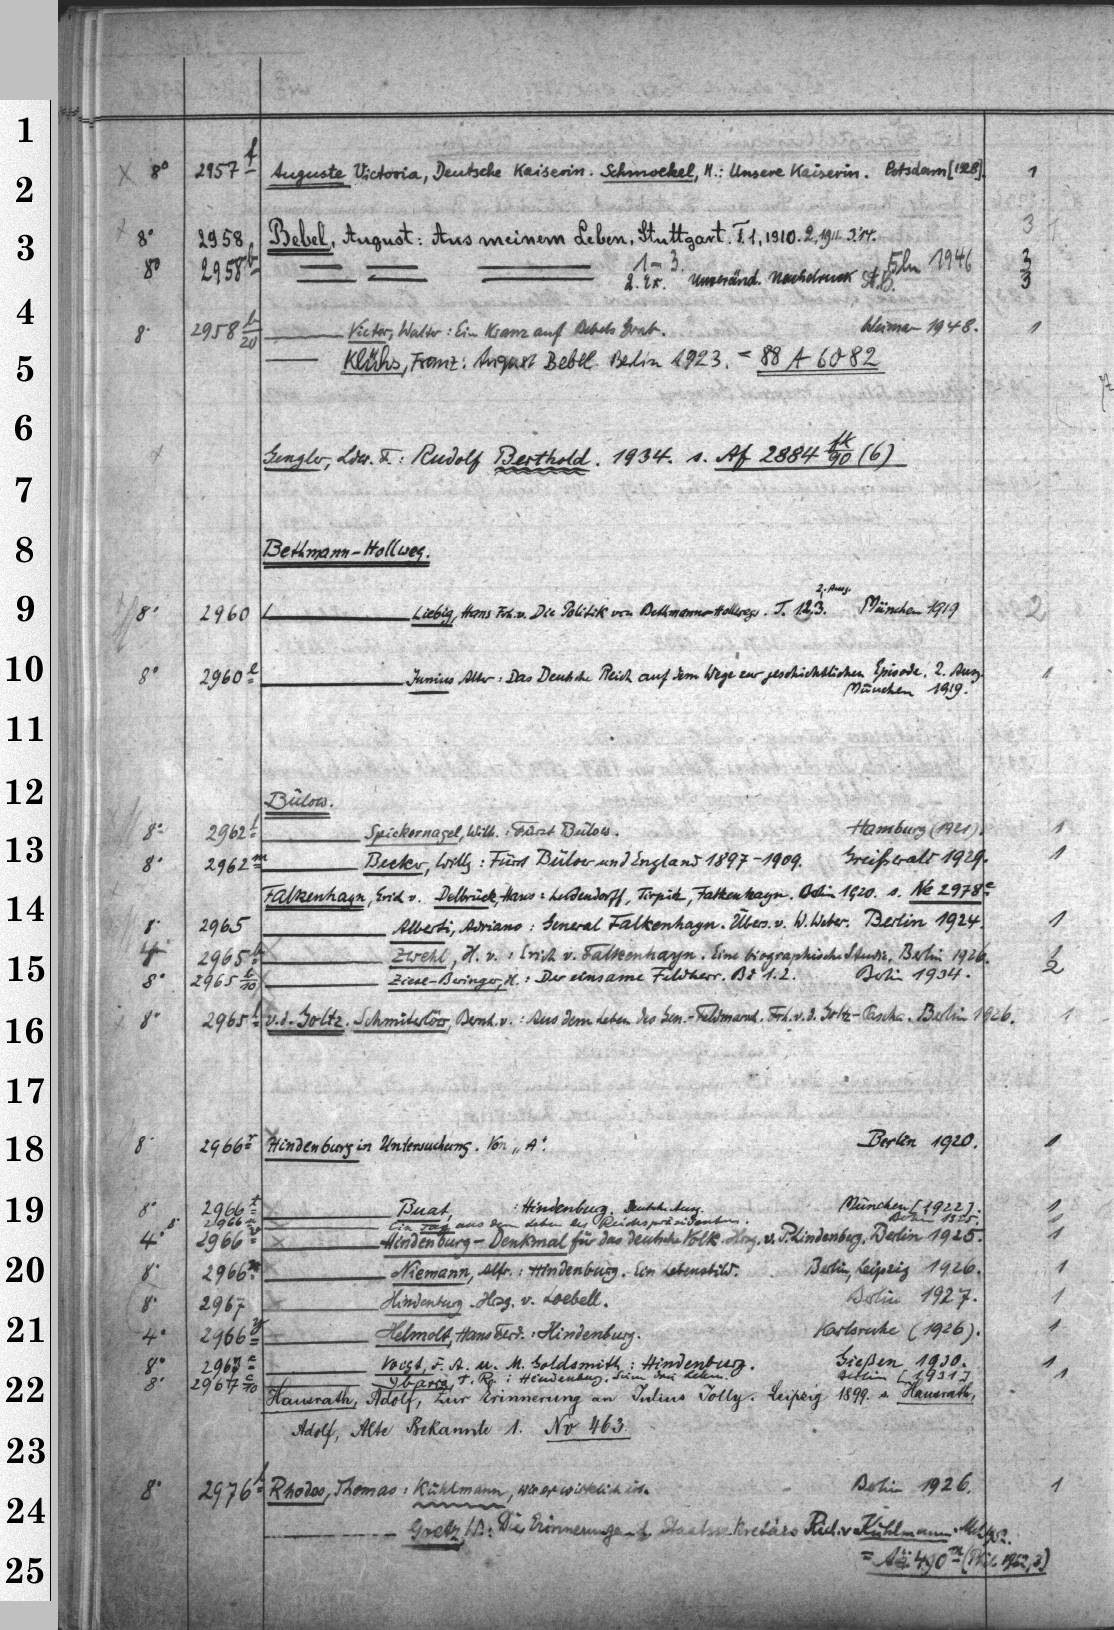 1
2
3
4
5
6
7
8
9
10
11
12
13
14
15
16
17
18
19
20
21
22
23
24
25
8° 2957 f Auguste Victoria, Deutsche Kaiserin. Schmoekel, H.: Unsere Kaiserin. Potsdam [1928]. 1
8° 2958 Bebel, August: Aus meinem Leben, Stuttgart. T. 1, 1910. 2, 1911. 3, 14. 3
8° 2958 b 1-3. Bln 1946 3
2. Ex. Unveränd. Nachdruck 3
8° 2958 b/20 Victor, Walter: Ein Kranz auf Bebels Grab. Weimar 1948. 1
Klühs, Franz: August Bebel. Berlin 1923. = 88 A 6082
Gengler, Ldw. F.: Rudolf Berthold. 1934. s. Af 2884 fk/90 (6)
Bethmann-Hollweg.
2. Ausg.
8° 2960 Liebig, Hans Frh. v. Die Politik von Bethmann-Hollwegs. T. 1.2,3. München 1919 2
8° 2960 e Junius Alter: Das Deutsche Reich auf dem Wege zur geschichtlichen Episode. 2. Ausg. 1
München 1919.
Bülow.
8° 2962 l Spickernagel, Wilh.: Fürst Bülow. Hamburg (1921). 1
8° 2962 m Becker, Willy: Fürst Bülow und England 1897-1909. Greifswald 1929. 1
Falkenhayn, Erich v. Delbrück, Hans: Ludendorff, Tirpitz, Falkenhayn. Berlin 1920. s. Ne 2978 e
8° 2965 Alberti, Adriano: General Falkenhayn. Übers. v. W. Weber. Berlin 1924. 1
2965 b Zwehl, H. v.: Erich v. Falkenhayn. Eine biographische Studie, Berlin 1926. 1
8° 2965 b/10 Ziese-Beringer, H.: Der einsame Feldherr. Bd 1.2. Berlin 1934. 2
8° 2965 f v. d. Goltz. Schmiterlöw, Bernh. v.: Aus dem Leben des Gen.-Feldmarsch. Frh. v. d. Goltz-Pascha. Berlin 1926. 1
8° 2966 r Hindenburg in Untersuchung. Von "A". Berlin 1920. 1
8° 2966 t Buat, : Hindenburg. Deutsche Ausg. München [1922]. 1
8° 2966 u Ein Tag aus dem Leben des Reichspräsidenten. Berlin 1925. 1
4° 2966 v Hindenburg-Denkmal für das deutsche Volk. Hrsg. v. P. Lindenberg, Berlin 1925. 1
8° 2966 w Niemann, Alfr.: Hindenburg. Ein Lebensbild. Berlin, Leipzig 1926. 1
8° 2967 Hindenburg. Hrsg. v. Loebell. Berlin 1927. 1
4° 2966 y Helmolt, Hans Ferd.: Hindenburg. Karlsruhe (1926). 1
8° 2967 c Voigt, F. A. u. M. Goldsmith: Hindenburg. Gießen 1930. 1
8° 2967 c/10 Ybarra, T. R.: Hindenburg. Seine drei Leben. Berlin [1931] 1
Hausrath, Adolf, Zur Erinnerung an Julius Jolly. Leipzig 1899. s. Hausrath,
Adolf, Alte Bekannte 1. Nv 463
8° 2976 f Rhodes, Thomas: Kühlmann, wie er wirklich ist. Berlin 1926. 1
Goetz, W.: Die Erinnerungen d. Staatssekretärs Rich. v. Kühlmann. Mch. 1952.
= Az 490 m (Phil. 1952, 3)